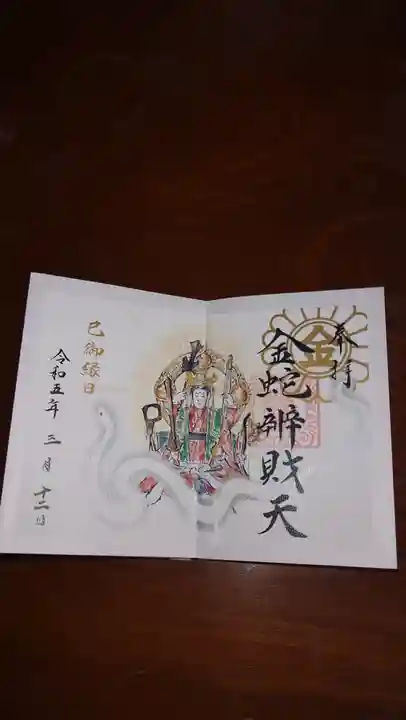 奉拝
金
金蛇辨財天
巳御縁日
令和五年三月十二日